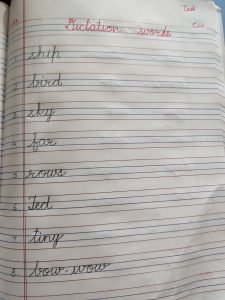 Dictation words
1. ship
2. bird
3. sky
4. far
5. rows
6. Ted
7. tiny
8. bow-wow